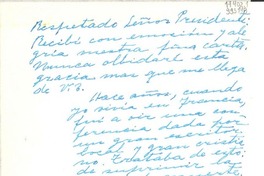 Respetado Señor Presidente:
Recibí con emoción y ale
gría nuestra fina carta.
Nunca olvidaré esta
gracia mas que me llega
de V. E.
Hace años, cuando
yo vivía en Francia,
fui a oír una con
ferencia dada por
un gran escritor
local y gran cristia
no. Trataba de
de suprimir la